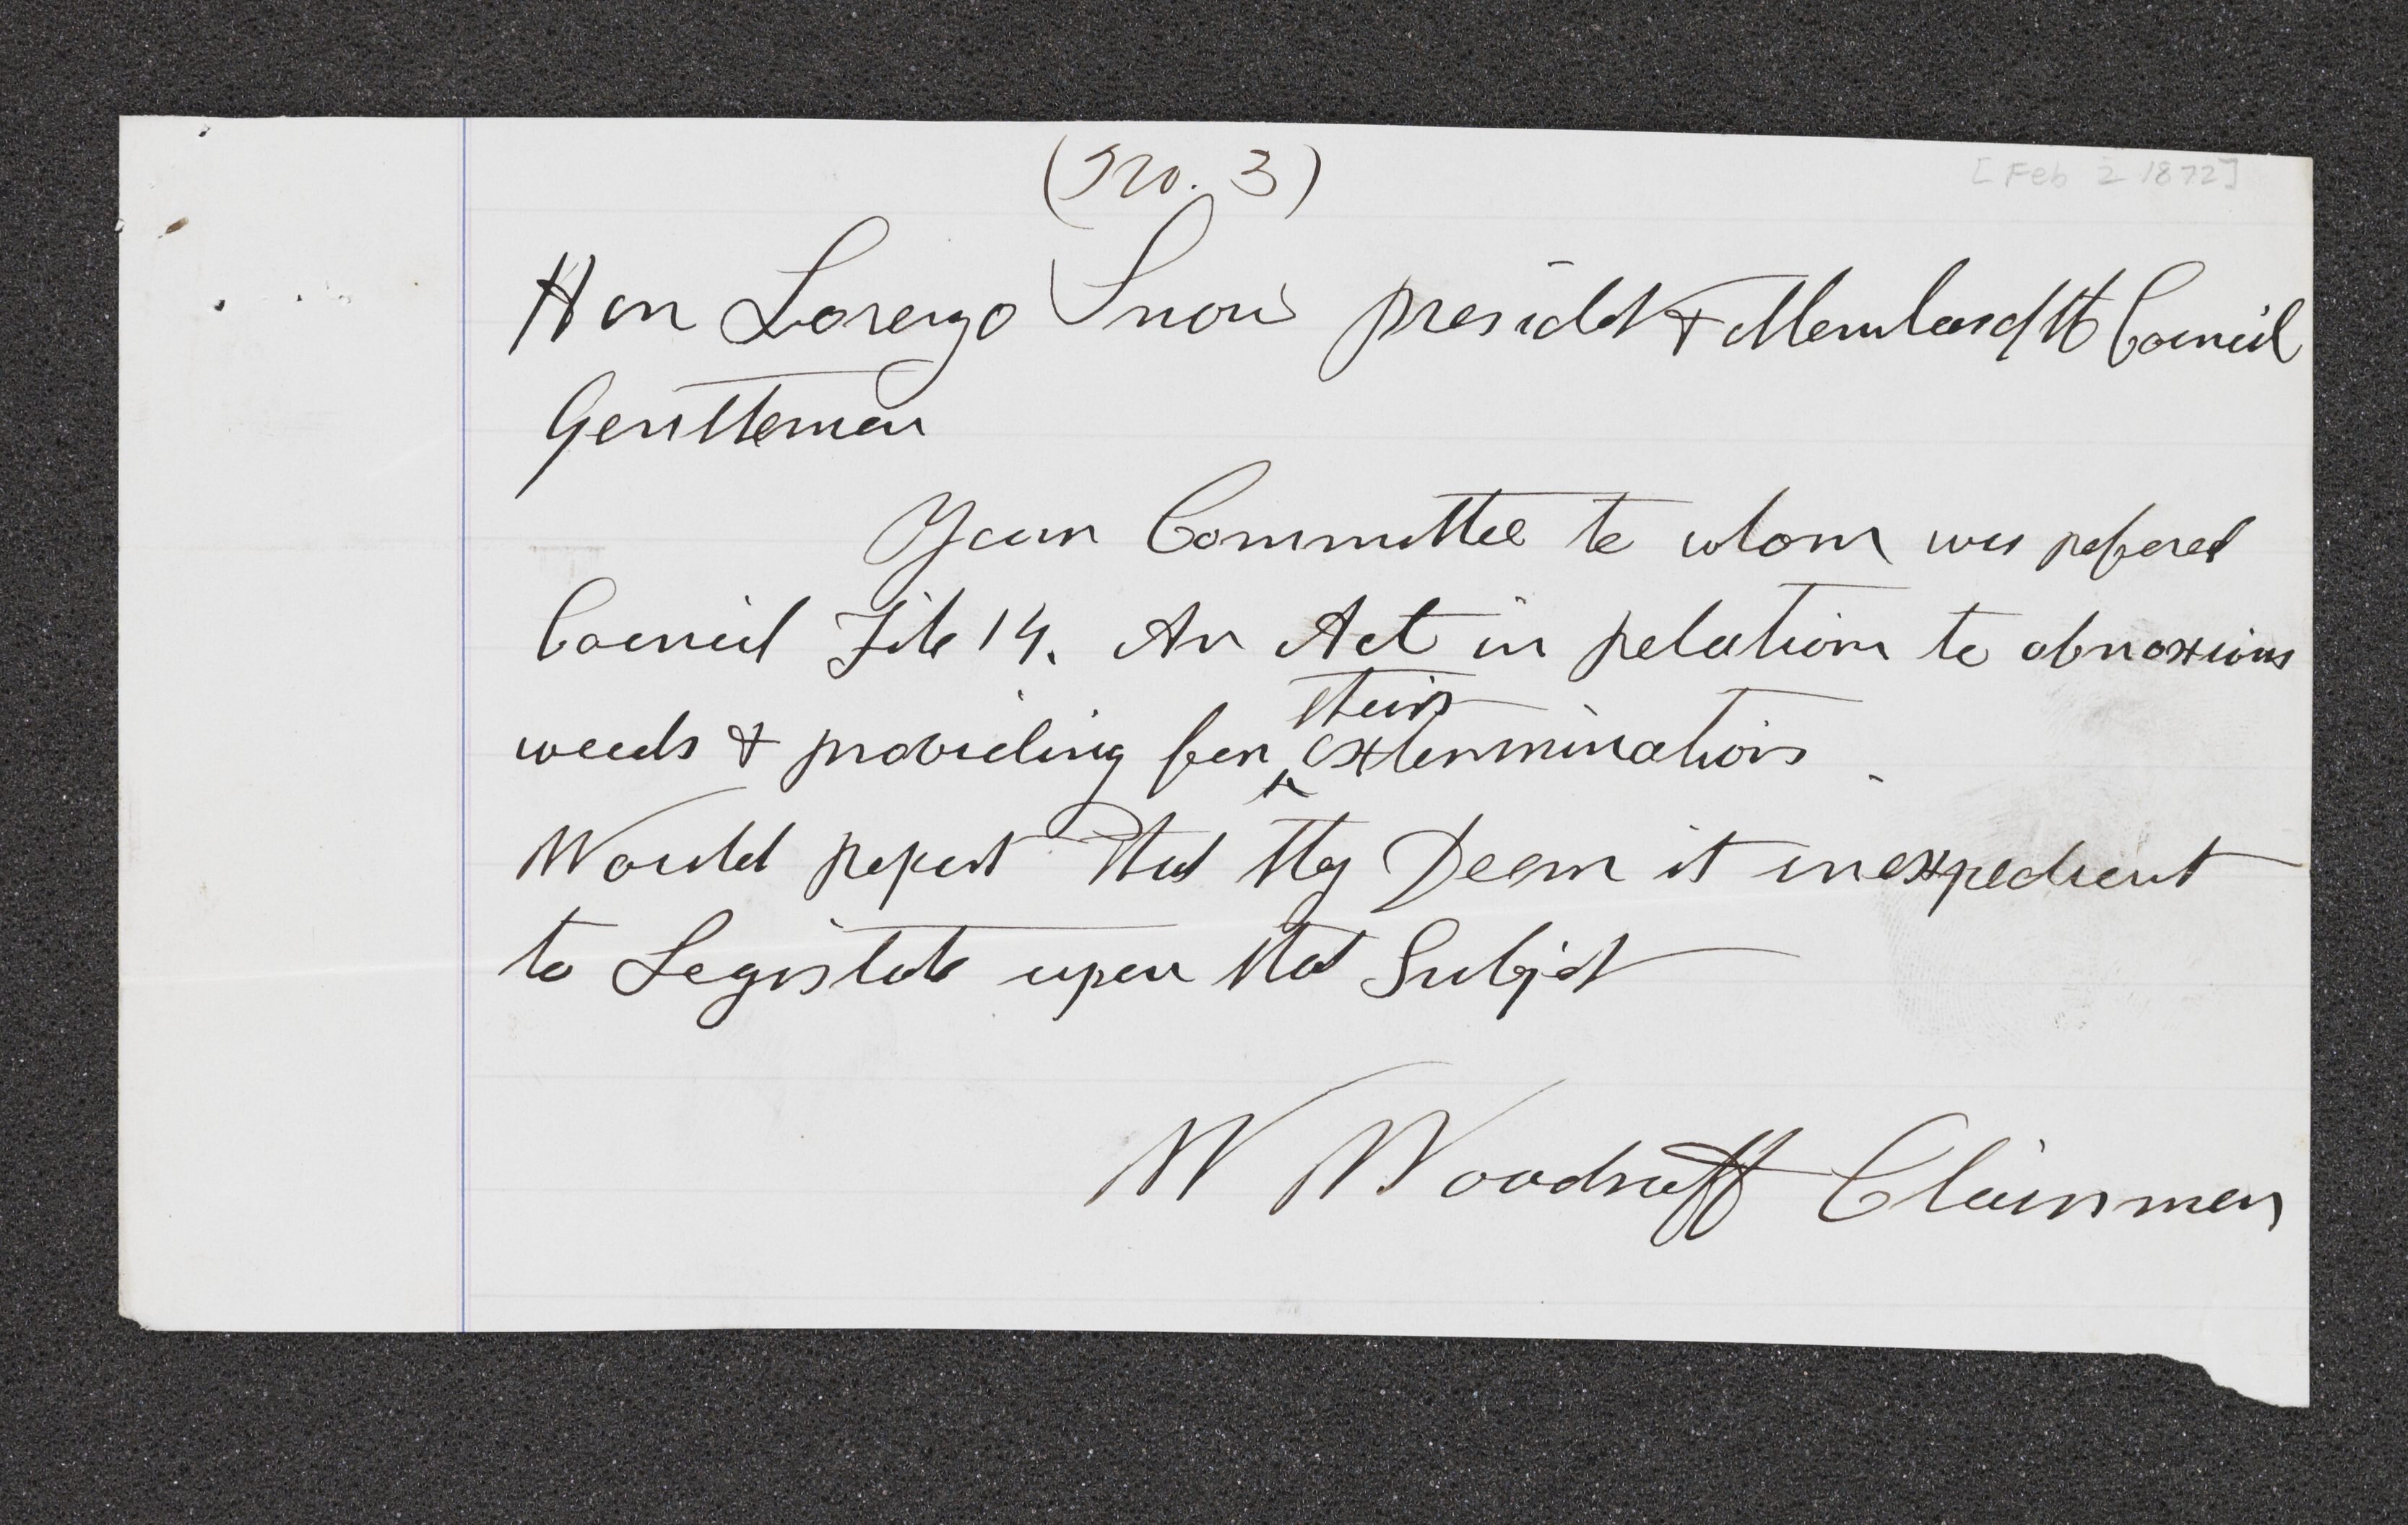 (No. 3)
[Feb 2 1872]
Hon Lorenzo Snow presidet & Members of the Council
Gentlemen
Your Committee to whom was refered
Council File 14. An Act in relation to obnoxious
weeds & providing for ^ their extermination
Would report that they Deem it inexpedient
to Legislate upon that Subject
W Woodruff Chairman